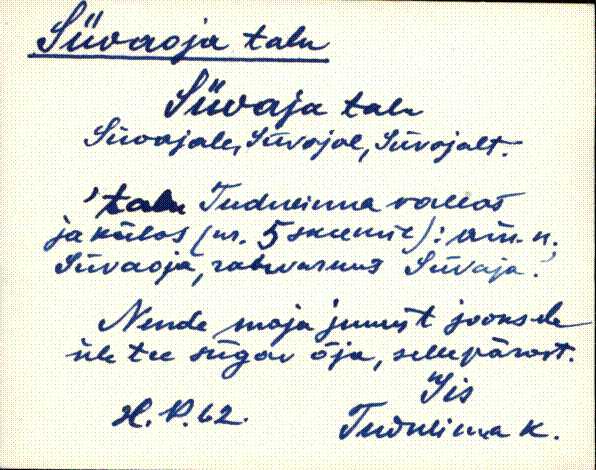 Süvaoja talu
Süvaja talu
Süvojale, Süvojal, Süvojalt.
'talu Tudulinna vallas
ja külas (nr. 5 skeemil): am. n.
Süvaoja, rahvasuus Süvaja.'
Nende maja juurest jooksele
üle tee sügav õja, sellepärast.
Iis
H. P. 62. Tudulinna k.